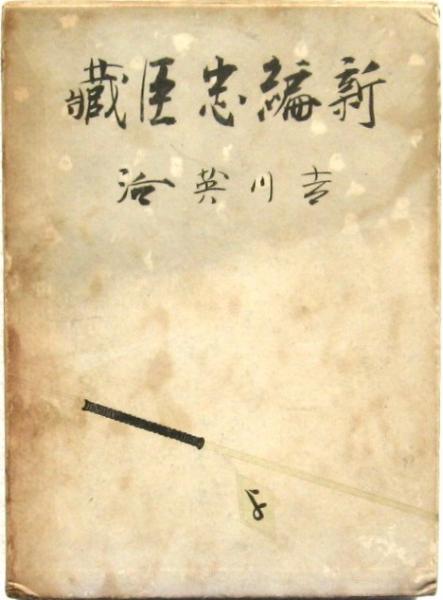 新編忠臣藏
吉川英治